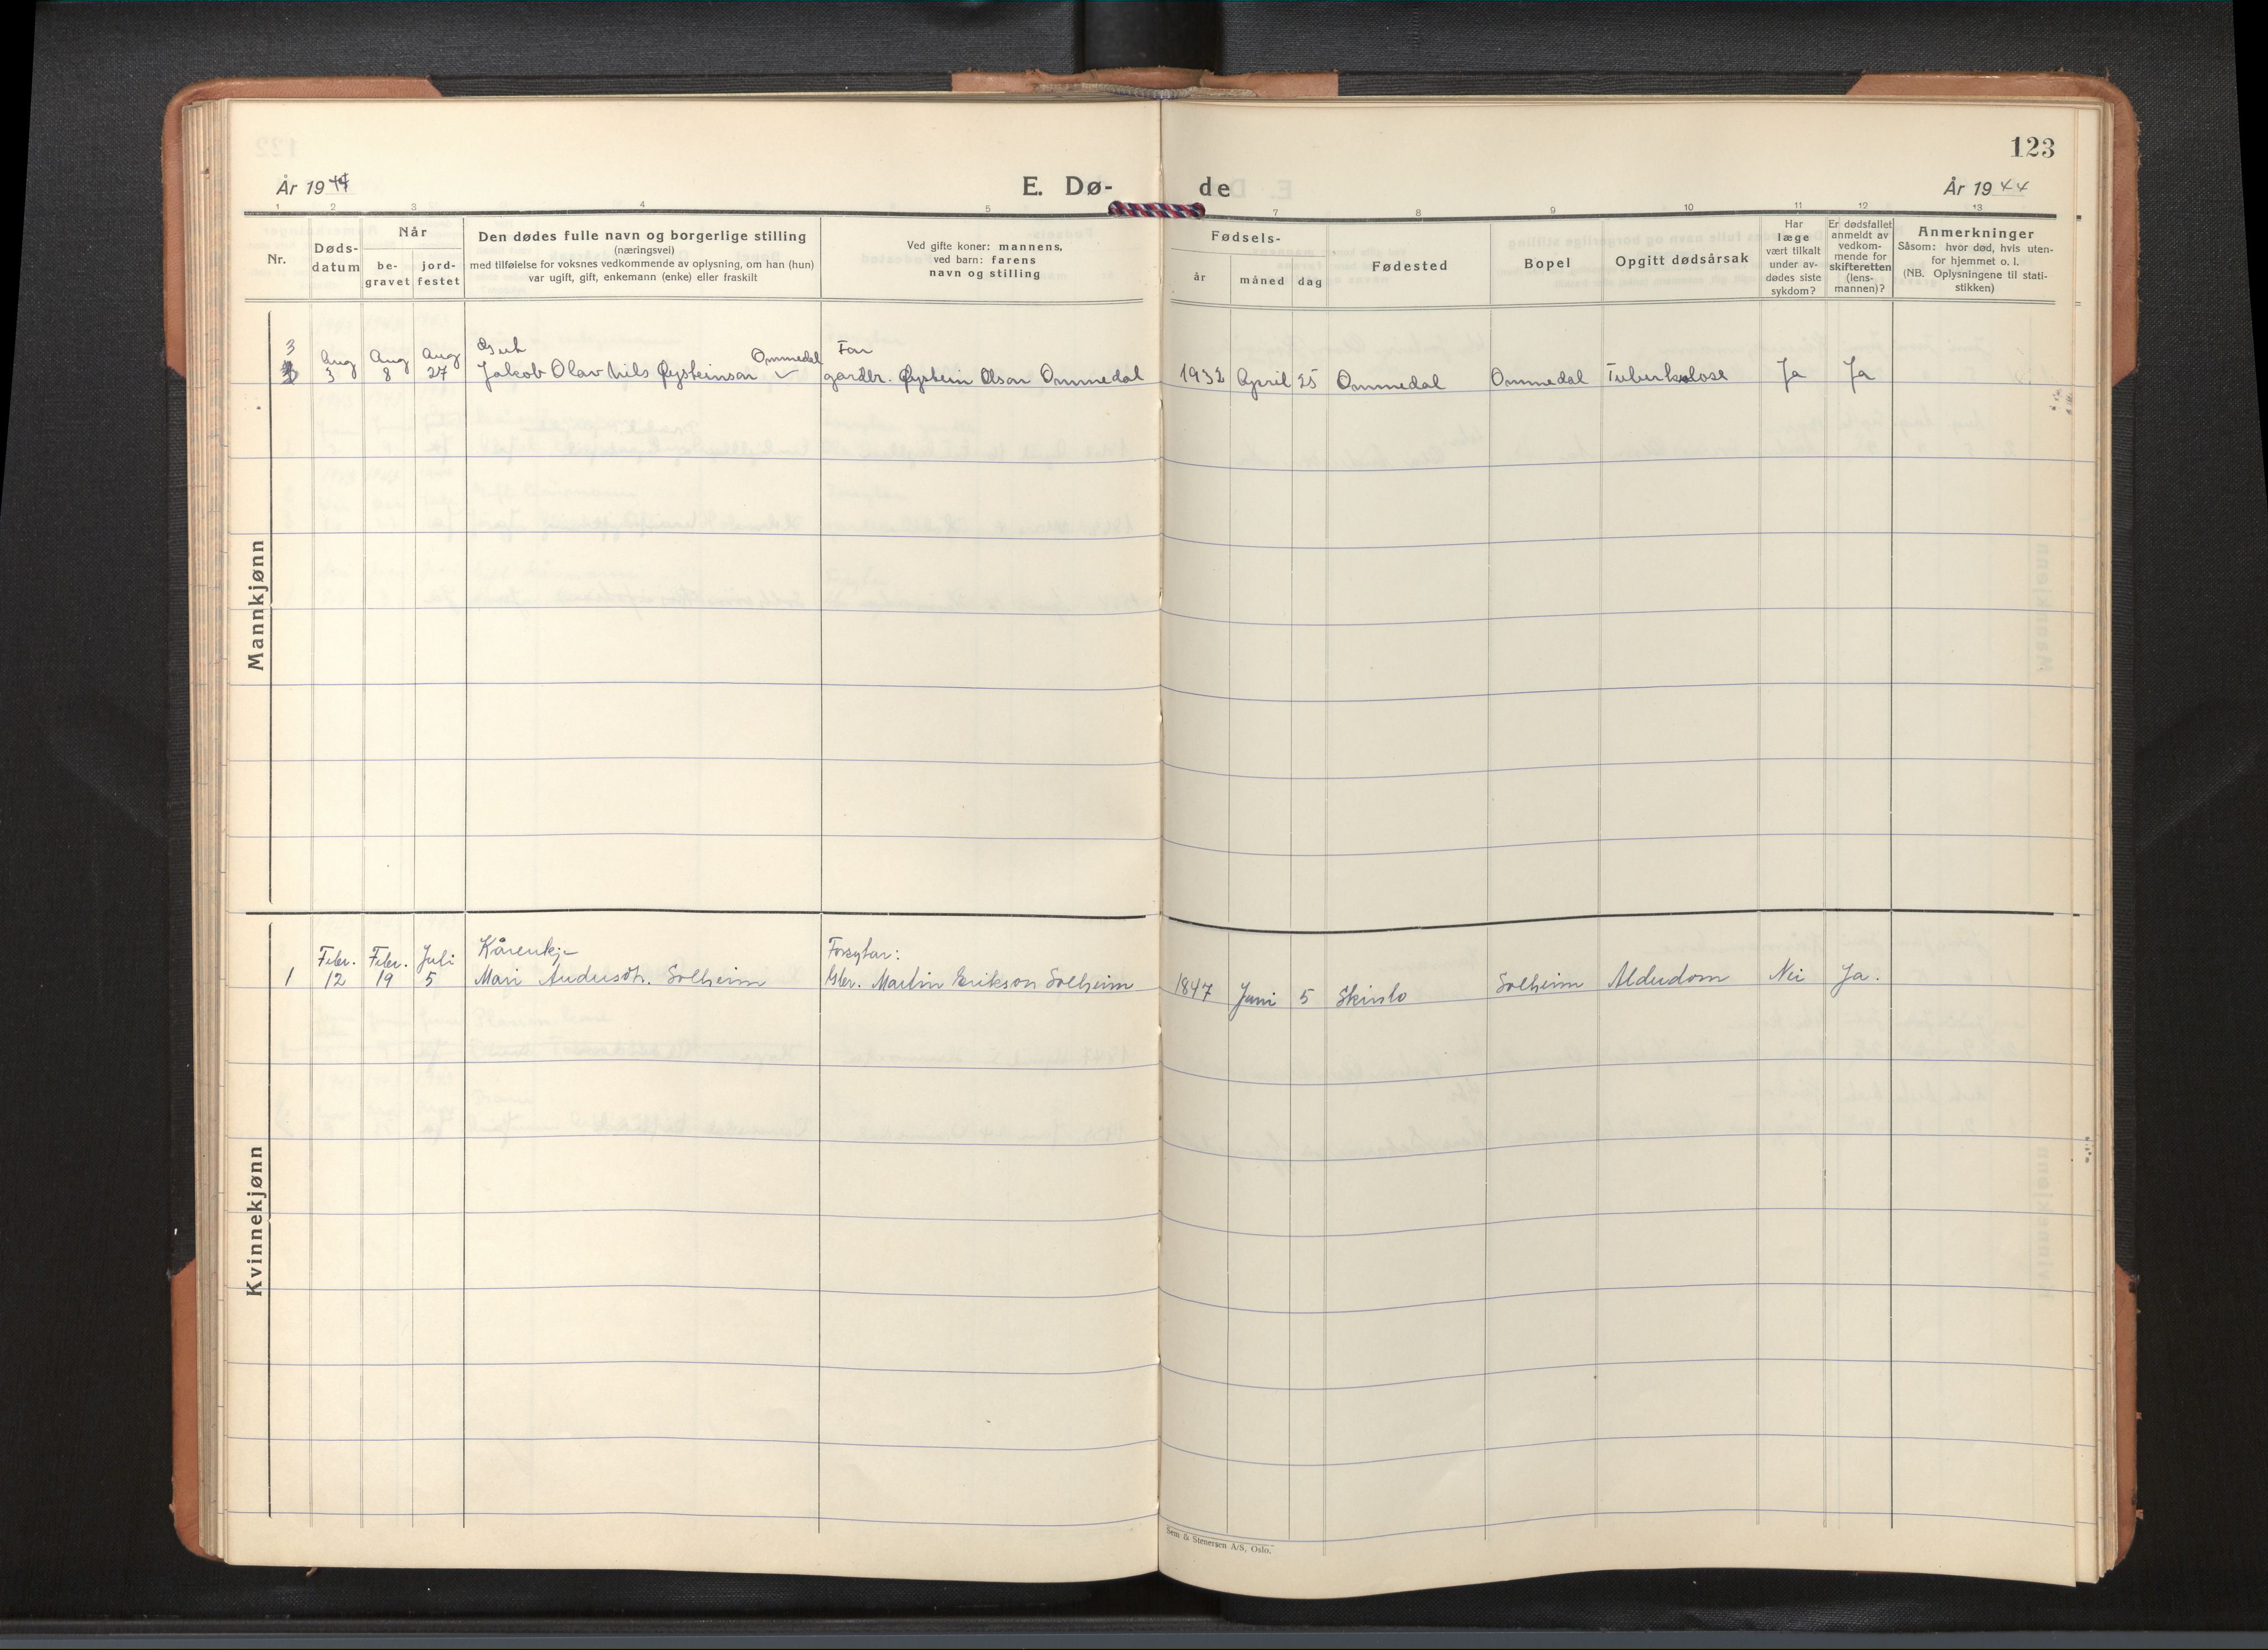 123
År 1944
E. Dø-
de
År 1944
1 2 3 4 5 7 8 9 10 11 12 13
Nr.
Døds-
datum
Når
be-
gravet
jord-
festet
Den dødes fulle navn og borgerlige stilling
(næringsvei)
med tilføielse for voksnes vedkommende av oplysning, om han (hun)
var ugift, gift, enkemann (enke) eller fraskilt
Ved gifte koner: mannens,
ved barn: farens
navn og stilling
Fødsels-
år
måned
dag
Fødested
Bopel
Opgitt dødsårsak
Har
læge
vært tilkalt
under av-
dødes siste
sykdom?
Er dødsfallet
anmeldt av
vedkom-
mende for
skifteretten
(lens-
mannen)?
Anmerkninger
Såsom: hvor død, hvis uten-
for hjemmet o. l.
(NB. Oplysningene til stati-
stikken)
Mannkjønn
3 Aug Aug Aug Gut Ommedal Far
3 8 27 Jakob Olav Nils Øysteinson gardbr. Øystein Olson Ommedal 1932 April 25 Ommedal Ommedal Tuberkulose Ja Ja
Kvinnekjønn
Febr. Febr. Juli Forsytar:
1 12 19 5 Mari Andersdtr. Solheim Martin Erikson Solheim 1847 Juni 5 Skinlo Solheim Alderdom Nei Ja.
Sem & Stenersen A/S, Oslo.